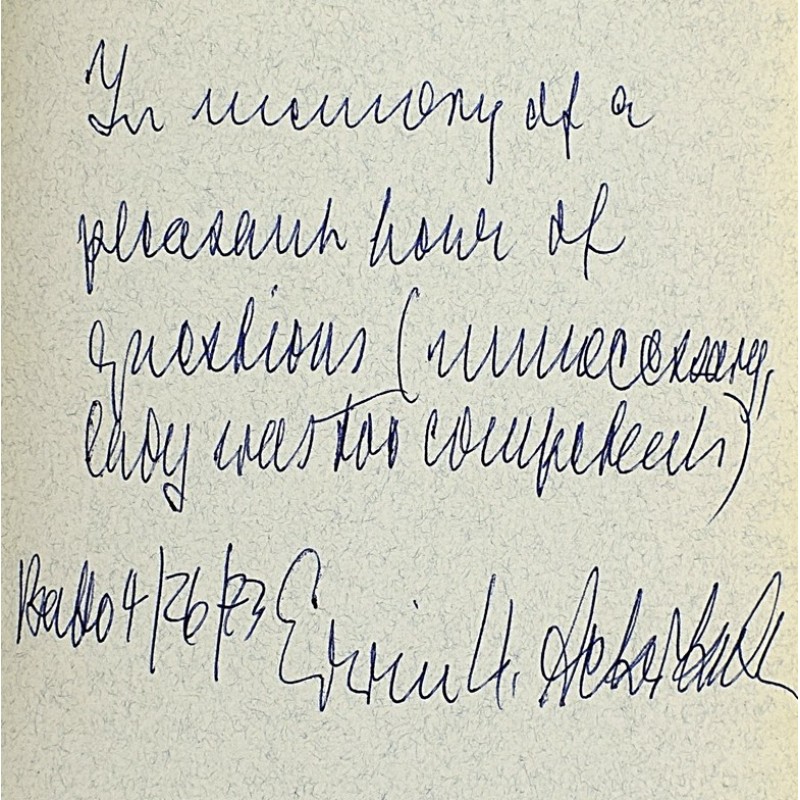 In memory of a
pleasant hour of
questions (unnecessary,
lady was too competent)
Balto 4/26/73 Erwin H. Ackerknecht